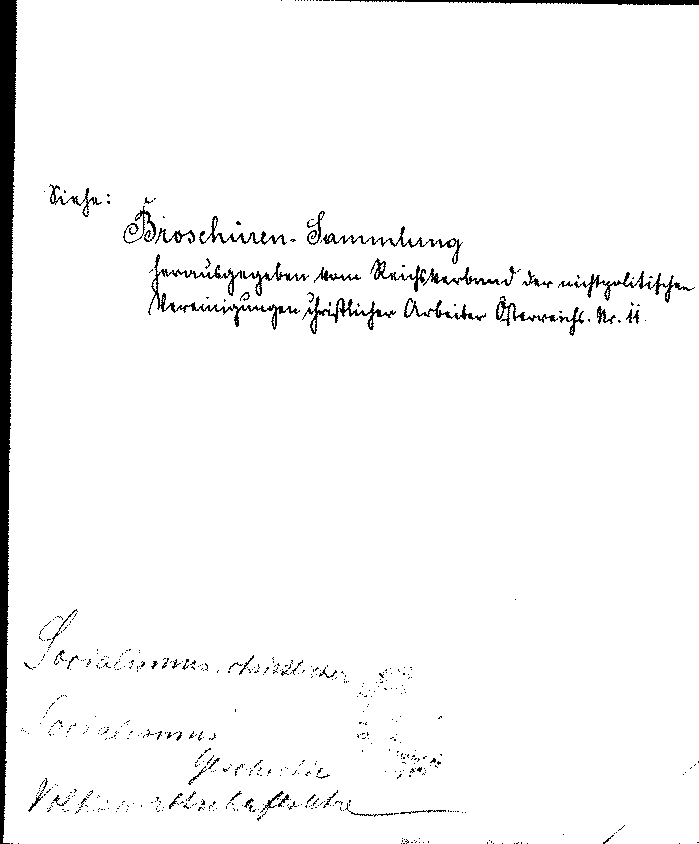 Siehe:
Broschüren-Sammlung
herausgegeben vom Reichsverband der nichtpolitischen
Vereinigungen christlicher Arbeiter Österreichs. Nr. 11.
Socialismus, christlicher
Socialismus
Geschichte
Volkswirtschaftslehre